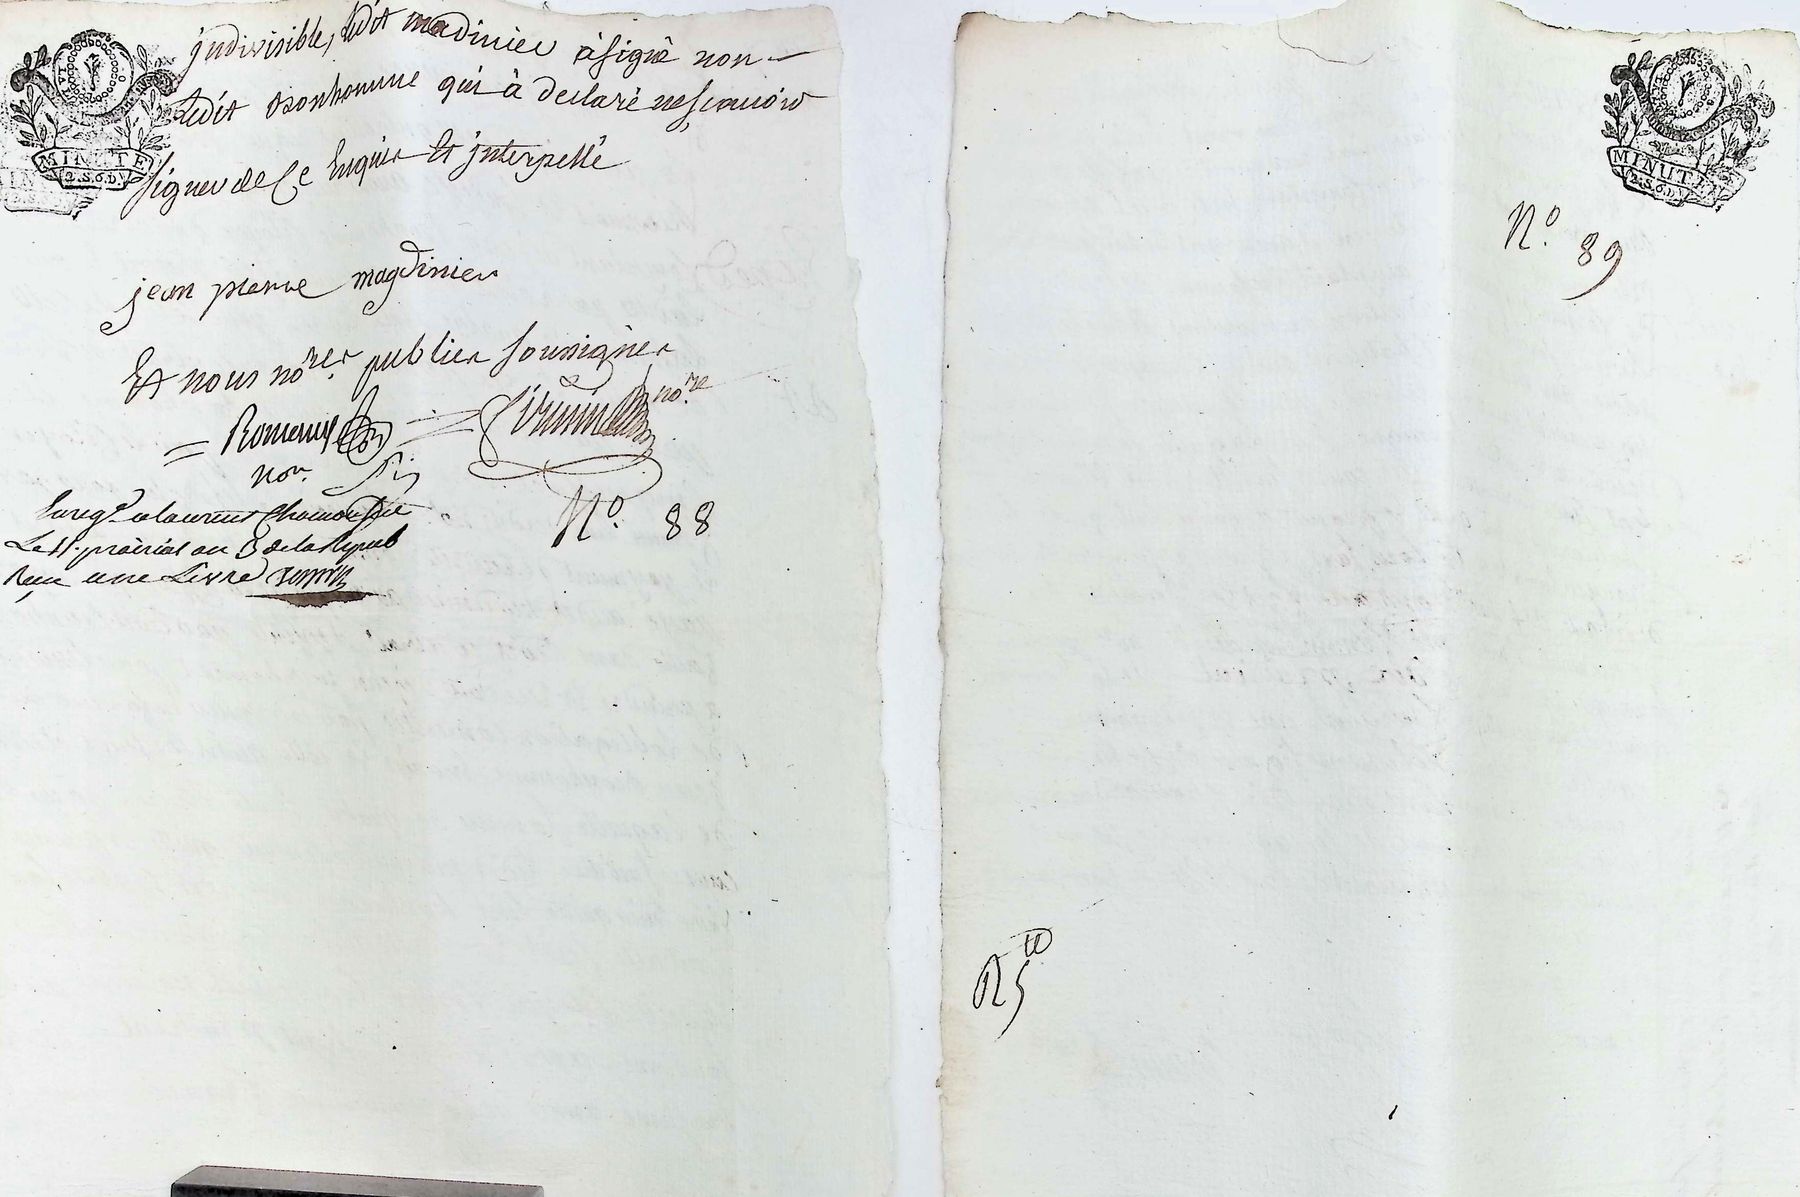 MINUTE
2.S.6.D.
judivisible, ledit madinier à signé non
ledit Bonhomme qui à declaré ne scauoir
signer de ce Enquis Et jnterpellé
jean pierre magdinier
Et nous no.res publics soussignés
no.re
Nore.
N.o 88
Le 11. prairial an 3 de la Repub
Reçu une Livre
MINUTE
2.S.6.D.
N.o 89
R 5 tt